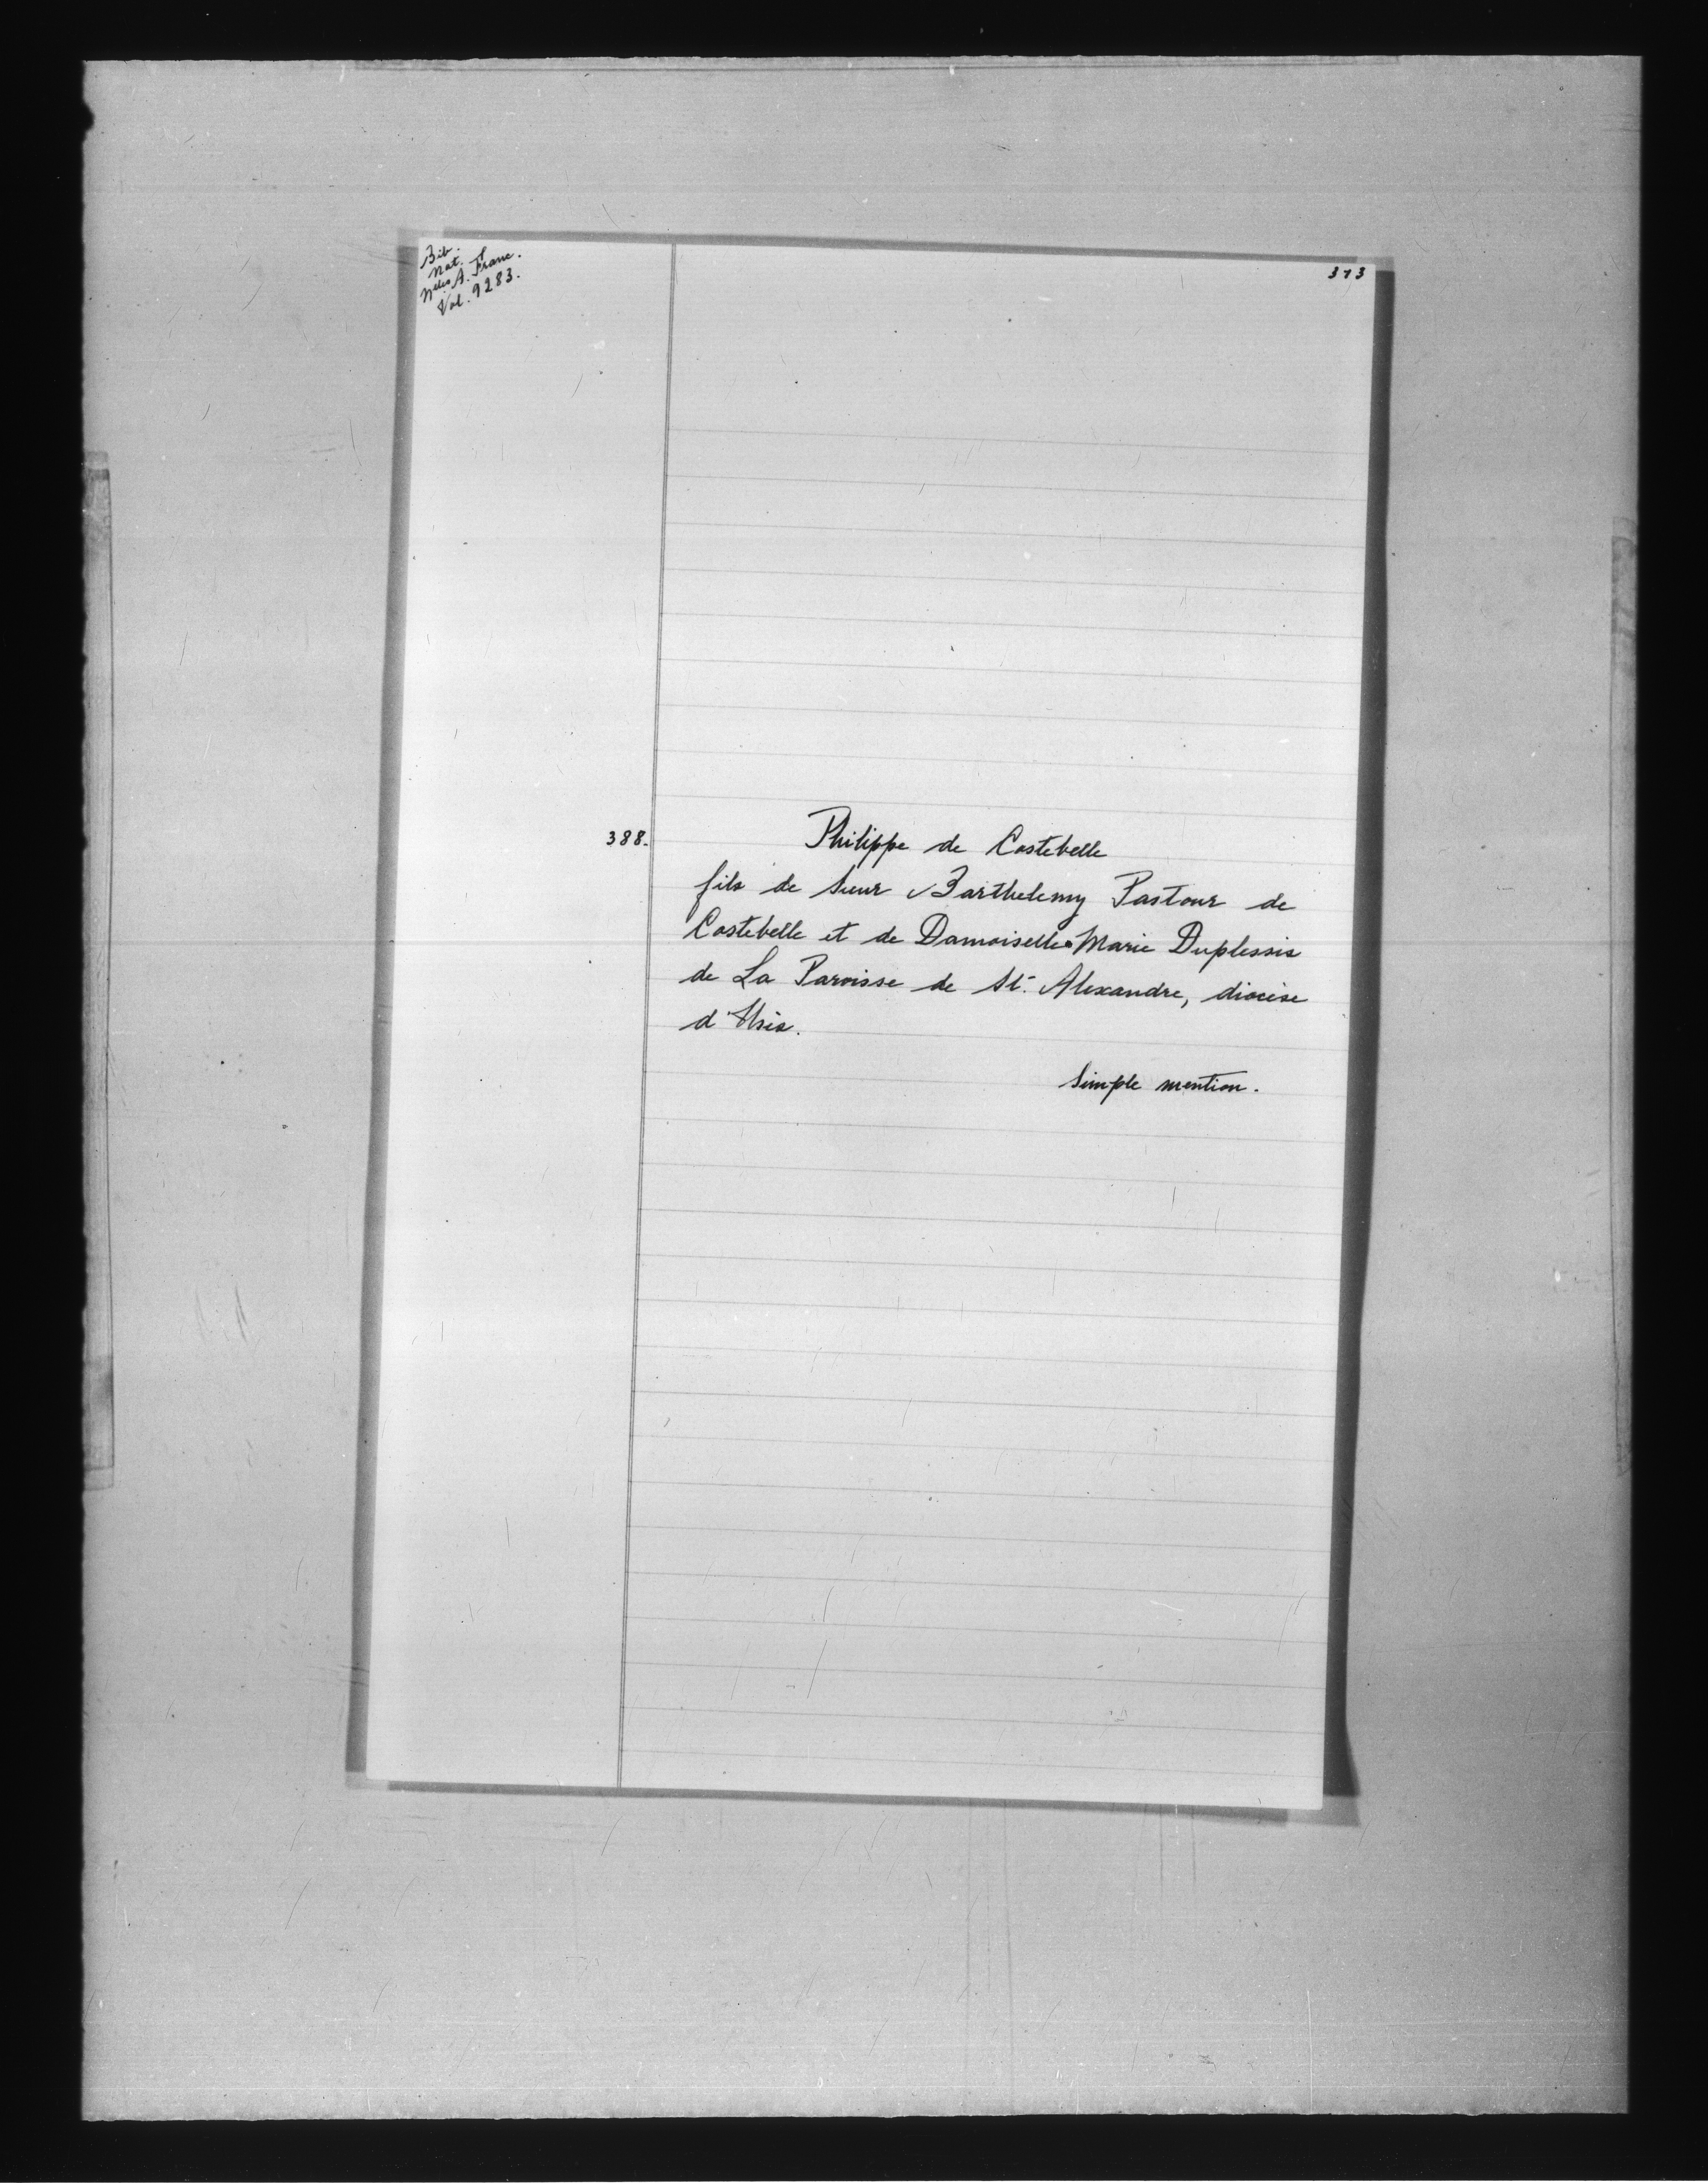 Bib.
Nat.
Nlles A. Franc.
Vol. 9283.
373
388.
Philippe de Costebelle
fils de Sieur Barthelemy Pastour de
Costebelle et de Damoiselle Marie Duplessis
de La Paroisse de St. Alexandre, diocèse
d'Usès.
Simple mention.